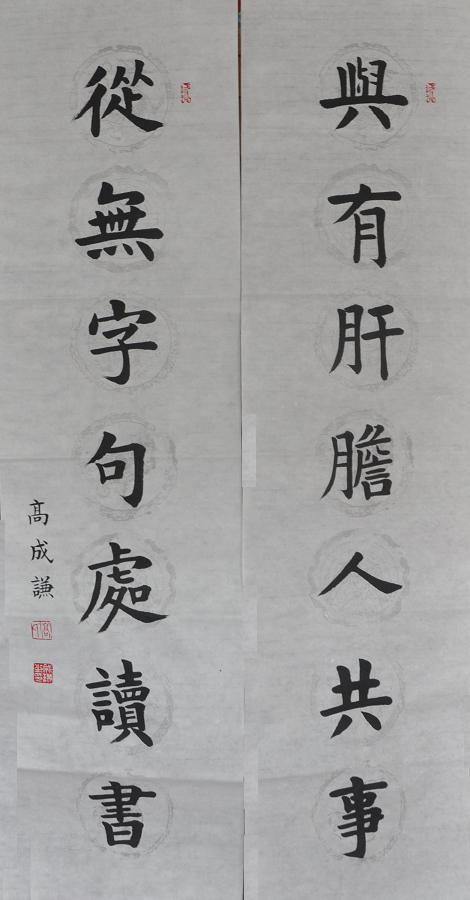 與有肝膽人共事
從無字句處讀書
高成謙